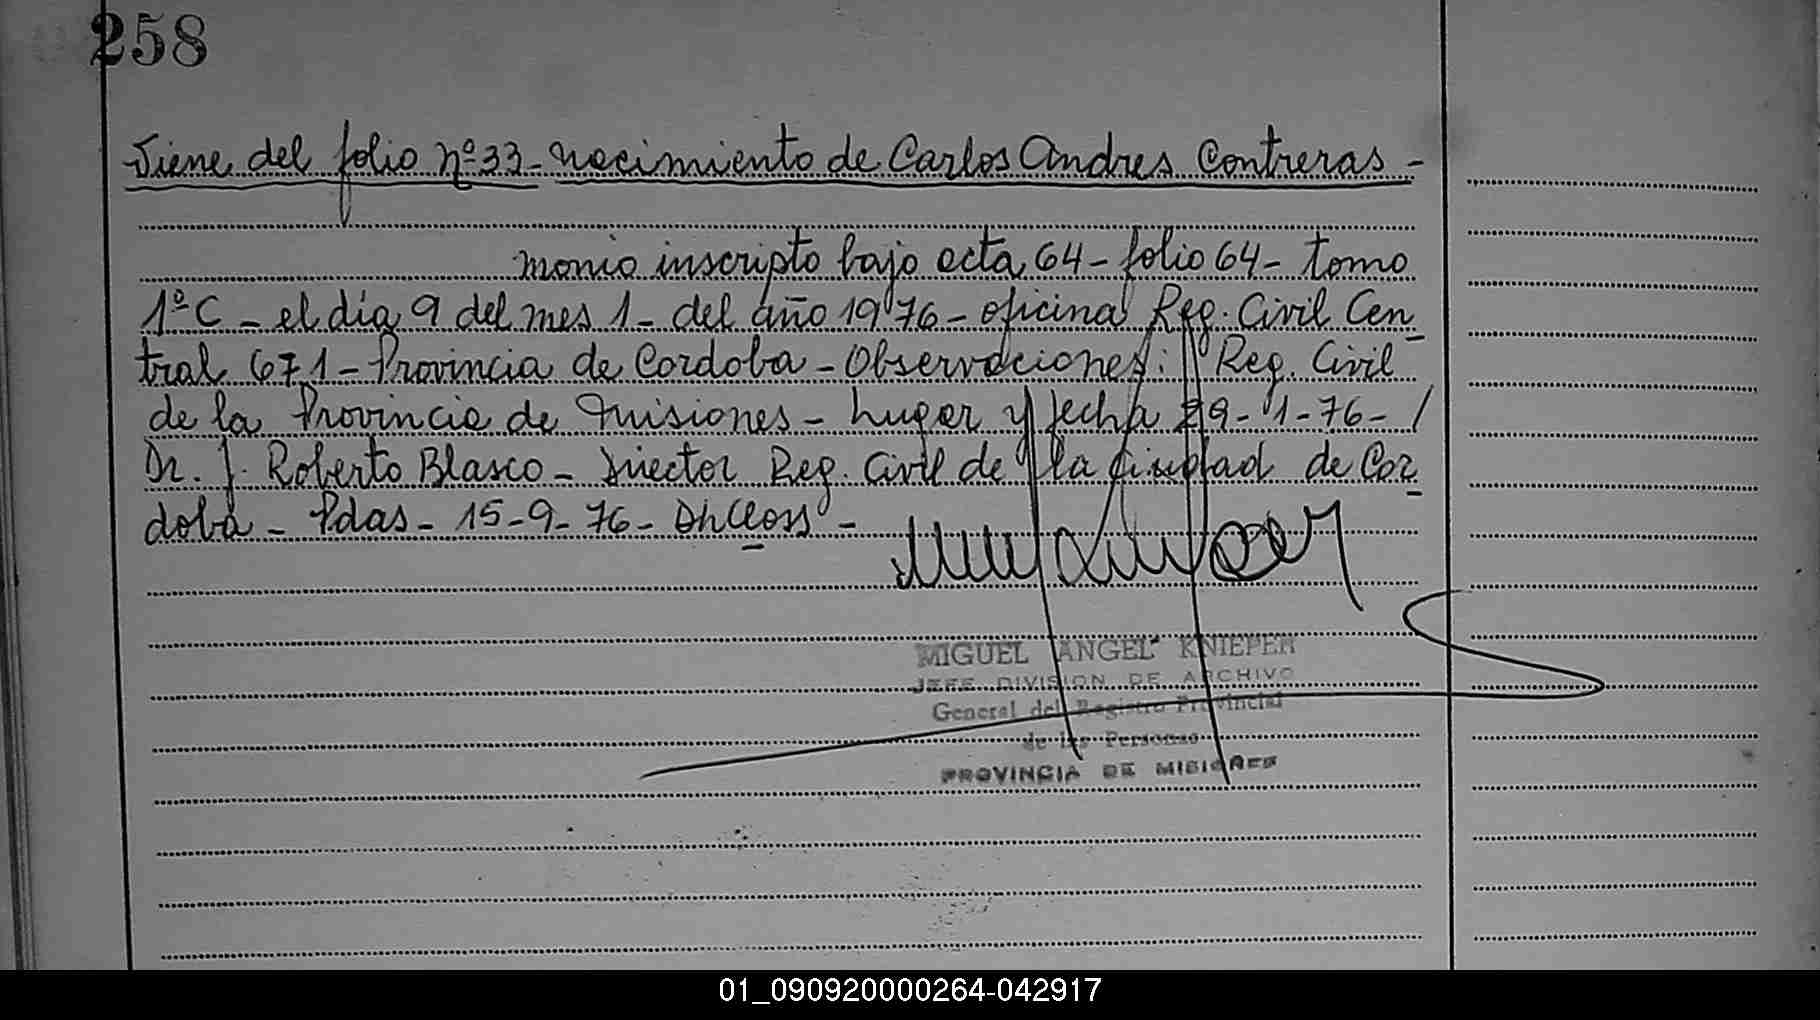 258
Viene del folio Nº 33 - Nacimiento de Carlos Andres Contreras -
monio inscripto bajo acta 64 - folio 64 - tomo
1º C - el día 9 del mes 1 - del año 1976 - oficina Reg. Civil Cen
tral 671 - Provincia de Cordoba - Observaciones: Reg. Civil
de la Provincia de Misiones - Lugar y fecha 29-1-76- /
Dr. J. Roberto Blasco - Director Reg. Civil de la Ciudad de Cor
doba - Pdas - 15-9-76 -
MIGUEL ANGEL KNIEPER
JEFE DIVISION DE ARCHIVO
General del Registro Provincial
de las Personas
PROVINCIA DE MISIONES
01_090920000264-042917